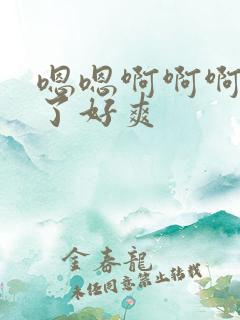 嗯嗯啊啊啊
了好爽
金春龍
未经同意禁止转载